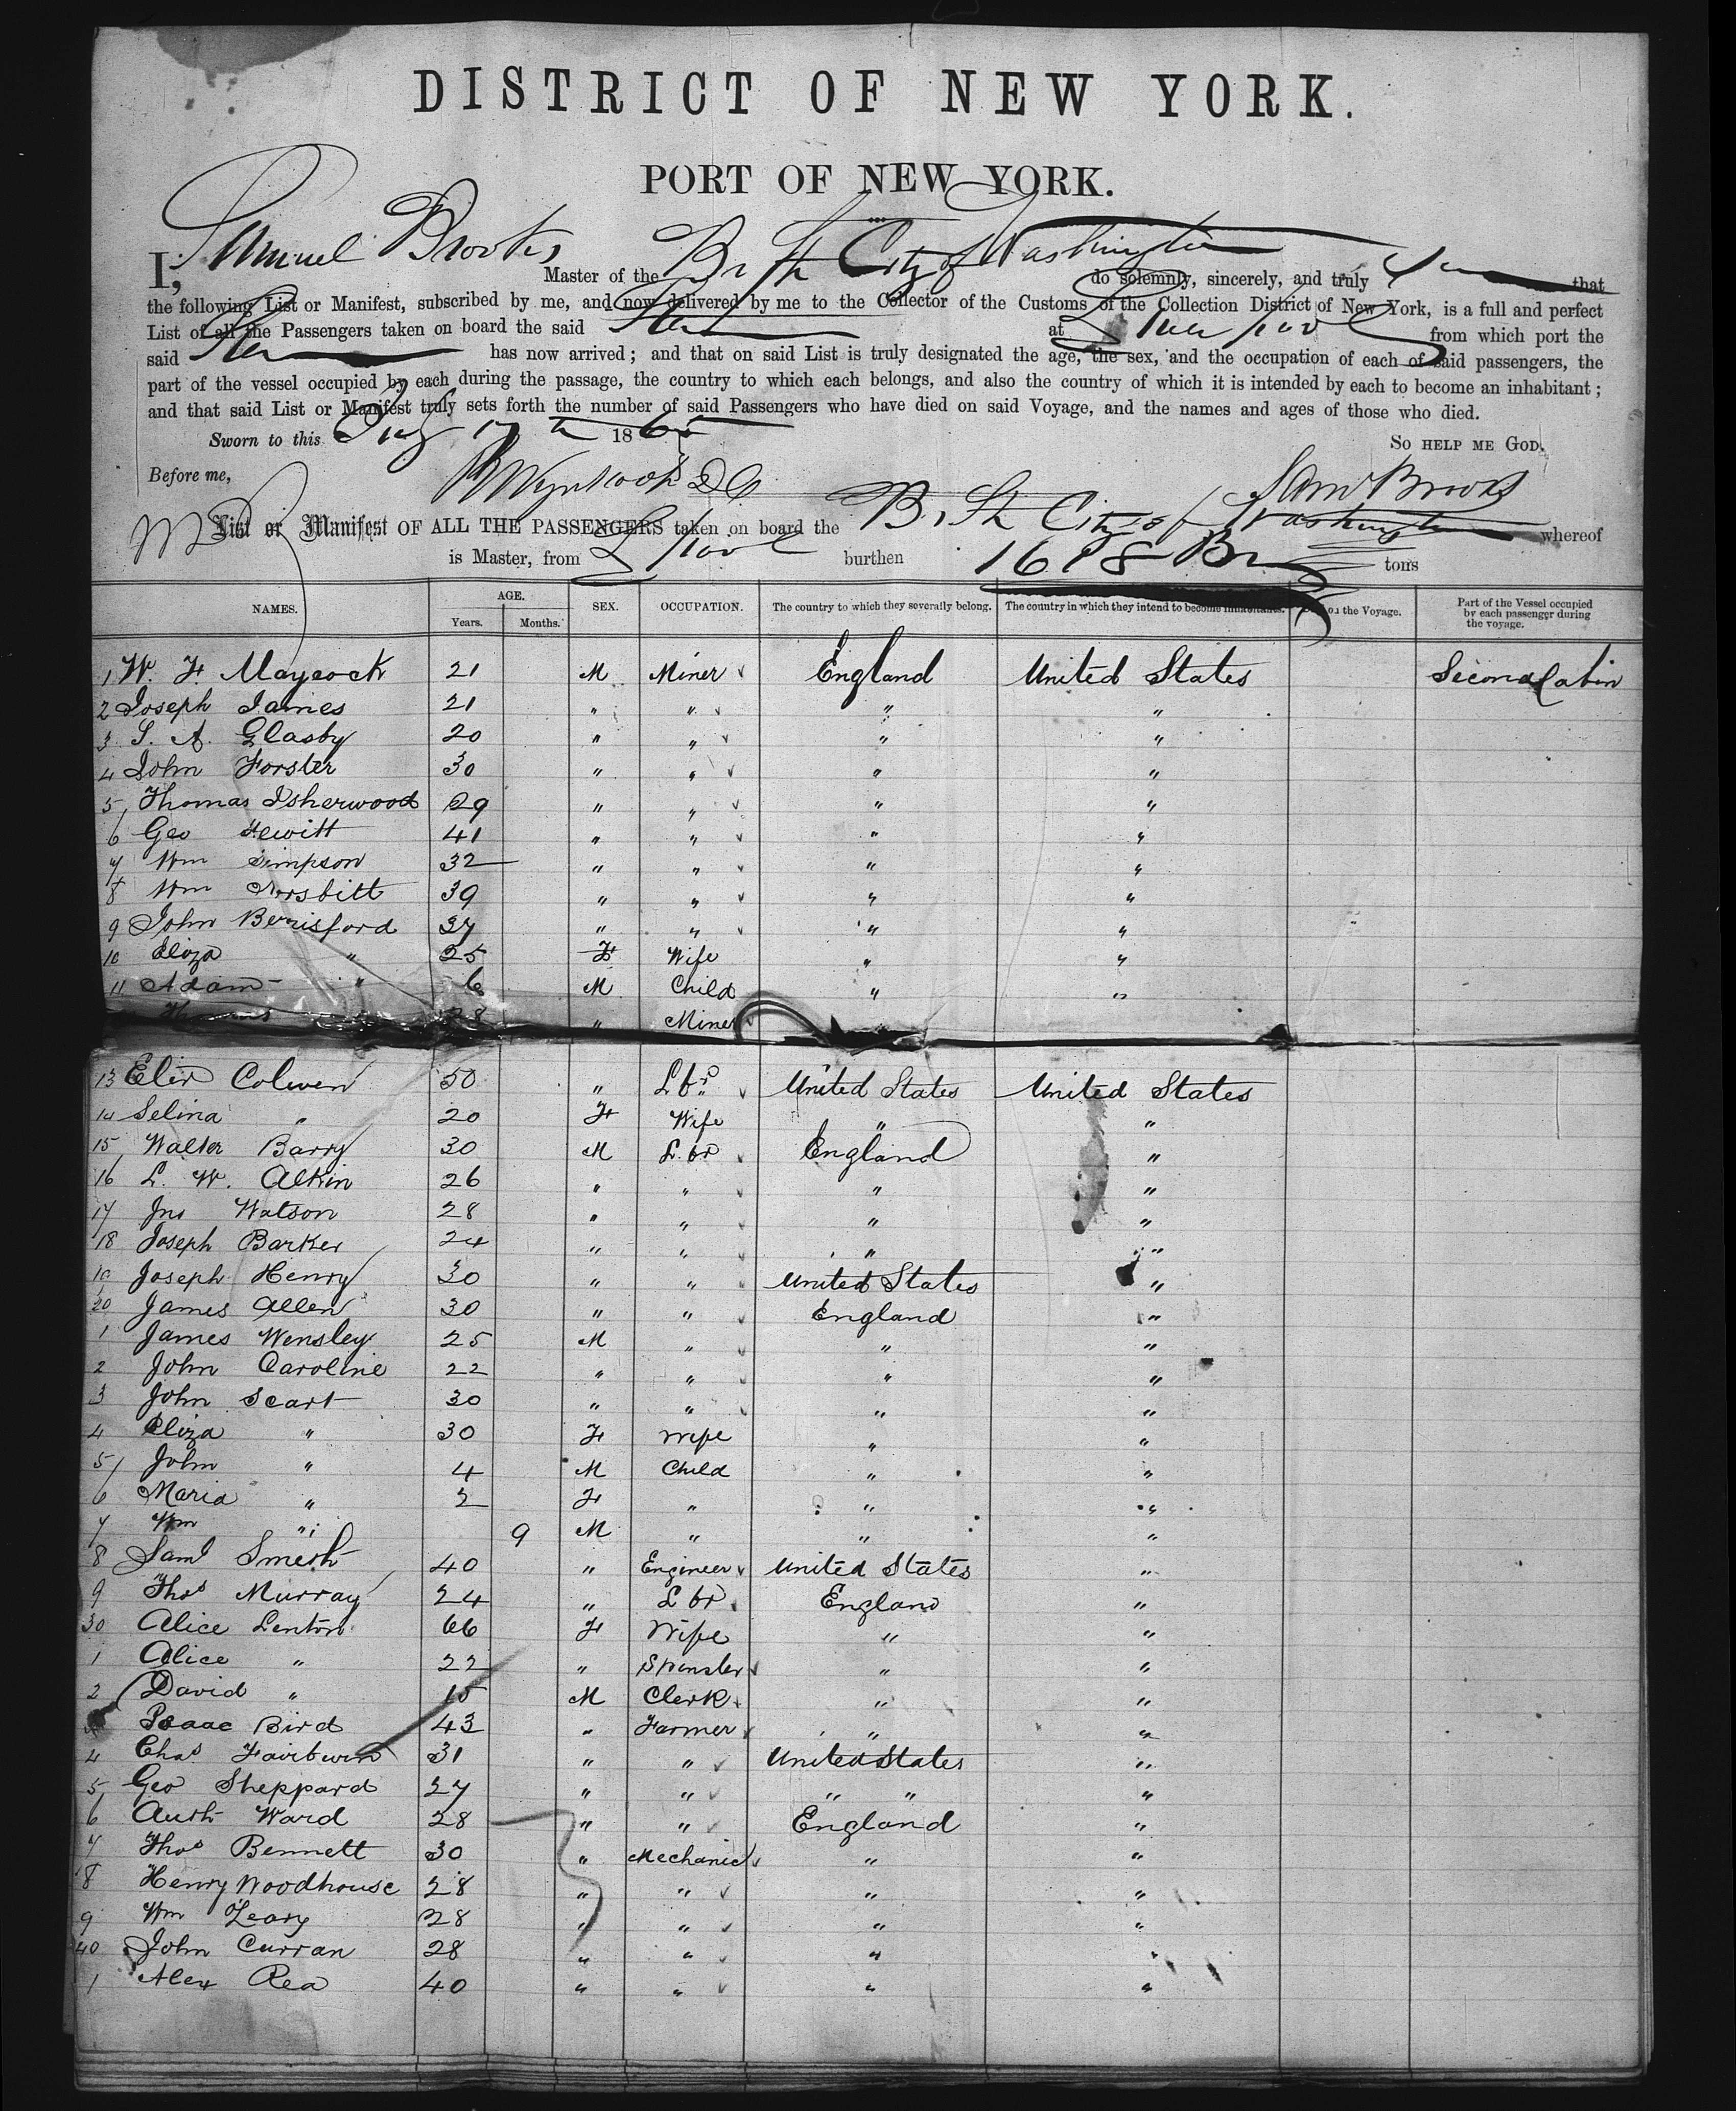 DISTRICT OF NEW YORK.
PORT OF NEW YORK.
I, Samuel Brooks Master of the Br St City of Washington do solemnly, sincerely, and truly that
the following List or Manifest, subscribed by me, and now delivered by me to the Collector of the Customs of the Collection District of New York, is a full and perfect
List of all the Passengers taken on board the said at Liverpool from which port the
said has now arrived; and that on said List is truly designated the age, the sex, and the occupation of each of said passengers, the
part of the vessel occupied by each during the passage, the country to which each belongs, and also the country of which it is intended by each to become an inhabitant;
and that said List or Manifest truly sets forth the number of said Passengers who have died on said Voyage, and the names and ages of those who died.
Sworn to this 17th 1865 So help me God.
Before me, Saml Brooks
List or Manifest OF ALL THE PASSENGERS taken on board the Br St City of Washington whereof
is Master, from L'pool burthen tons
NAMES. AGE. Years. Months. SEX. OCCUPATION. The country to which they severally belong. The country in which they intend to become inhabitants. on the Voyage. Part of the Vessel occupied by each passenger during the voyage.
1 W. F. Maycock 21 M Miner England United States Second Cabin
2 Joseph James 21 " " " "
3 S. A. Glasby 20 " " " "
4 John Forster 30 " " " "
5 Thomas Isherwood 29 " " " "
6 Geo Hewitt 41 " " " "
7 Wm Simpson 32 " " " "
8 Wm 39 " " " "
9 John Berrisford 37 " " " "
10 Eliza " 25 F Wife " "
11 Adam " 6 M Child " "
28 " Miner
13 Colwen 50 " Lbr United States United States
14 Selina " 20 F Wife " "
15 Walter Barry 30 M Lbr England "
16 L. W. Alkin 26 " " " "
17 Jno Watson 28 " " " "
18 Joseph Barker 24 " " " "
19 Joseph Henry 30 " " United States "
20 James Allen 30 " " England "
1 James Wensley 25 M " " "
2 John Caroline 22 " " " "
3 John Scart 30 " " " "
4 Eliza " 30 F Wife " "
5 John " 4 M Child " "
6 Maria " 2 F " " "
7 Wm " 9 M " " "
8 Saml 40 " Engineer United States "
9 Thos Murray 24 " Lbr England "
30 Alice Lenton 66 F Wife " "
1 Alice " 22 " Spinster " "
2 David " 15 M Clerk " "
Isaac Bird 43 " Farmer " "
4 Chas 31 " " United States "
5 Geo Sheppard 27 " " " " "
6 Auth Ward 28 " " England "
7 Thos Bennett 30 " Mechanic " "
8 Henry Woodhouse 28 " " " "
9 Wm Leary 28 " " " "
40 John Curran 28 " " " "
1 Alex Rea 40 " " " "